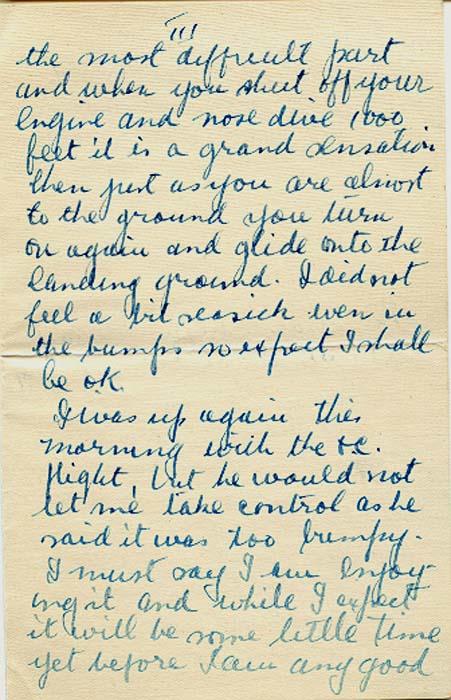 III
the most difficult part
and when you shut off your
engine and nose dive 1000
feet it is a grand sensation
then just as you are almost
to the ground you turn
on again and glide onto the
landing ground. I did not
feel a bit seasick even in
the bumps so expect I shall
be ok.
I was up again this
morning with the O.C.
flight, but he would not
let me take control as he
said it was too bumpy.
I must say I am enjoy-
ing it and while I expect
it will be some little time
yet before I am any good